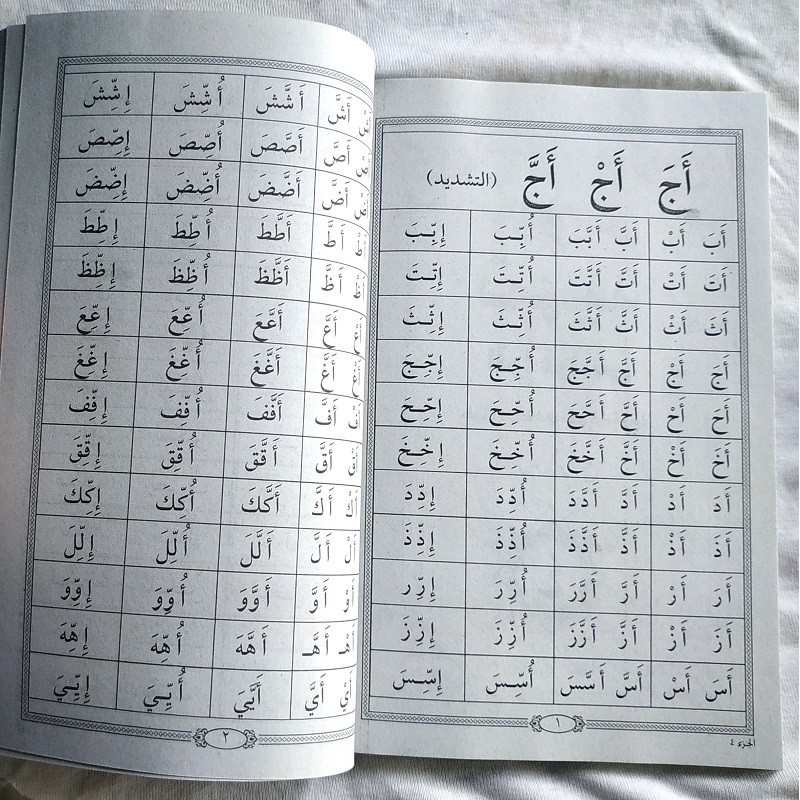 أَجَ أَجْ أَجَّ (التشديد)
أَبَ أَبْ أَبَّ أَبَّبَ أُبِّبَ إِبِّبَ
أَتَ أَتْ أَتَّ أَتَّتَ أُتِّتَ إِتِّتَ
أَثَ أَثْ أَثَّ أَثَّثَ أُثِّثَ إِثِّثَ
أَجَ أَجْ أَجَّ أَجَّجَ أُجِّجَ إِجِّجَ
أَحَ أَحْ أَحَّ أَحَّحَ أُحِّحَ إِحِّحَ
أَخَ أَخْ أَخَّ أَخَّخَ أُخِّخَ إِخِّخَ
أَدَ أَدْ أَدَّ أَدَّدَ أُدِّدَ إِدِّدَ
أَذَ أَذْ أَذَّ أَذَّذَ أُذِّذَ إِذِّذَ
أَرَ أَرْ أَرَّ أَرَّرَ أُرِّرَ إِرِّر
أَزَ أَزْ أَزَّ أَزَّزَ أُزِّزَ إِزِّزَ
أَسَ أَسْ أَسَّ أَسَّسَ أُسِّسَ إِسِّسَ
١
الجزء ٤
أَشَّ أَشَّشَ أُشِّشَ إِشِّشَ
أَصَّ أَصَّصَ أُصِّصَ إِصِّصَ
أَضَّ أَضَّضَ أُضِّضَ إِضِّضَ
أَطَّ أَطَّطَ أُطِّطَ إِطِّطَ
أَظَّ أَظَّظَ أُظِّظَ إِظِّظَ
أَعَّ أَعَّعَ أُعِّعَ إِعِّعَ
أَغَّ أَغَّغَ أُغِّغَ إِغِّغَ
أَفَّ أَفَّفَ أُفِّفَ إِفِّفَ
أَقَّ أَقَّقَ أُقِّقَ إِقِّقَ
أَكَّ أَكَّكَ أُكِّكَ إِكِّكَ
أَلَّ أَلَّلَ أُلِّلَ إِلِّلَ
أَوَّ أَوَّوَ أُوِّوَ إِوِّوَ
أَهَّـ أَهَّهَ أُهِّهَ إِهِّهَ
أَيَّ أَيَّيَ أُيِّيَ إِيِّيَ
٢